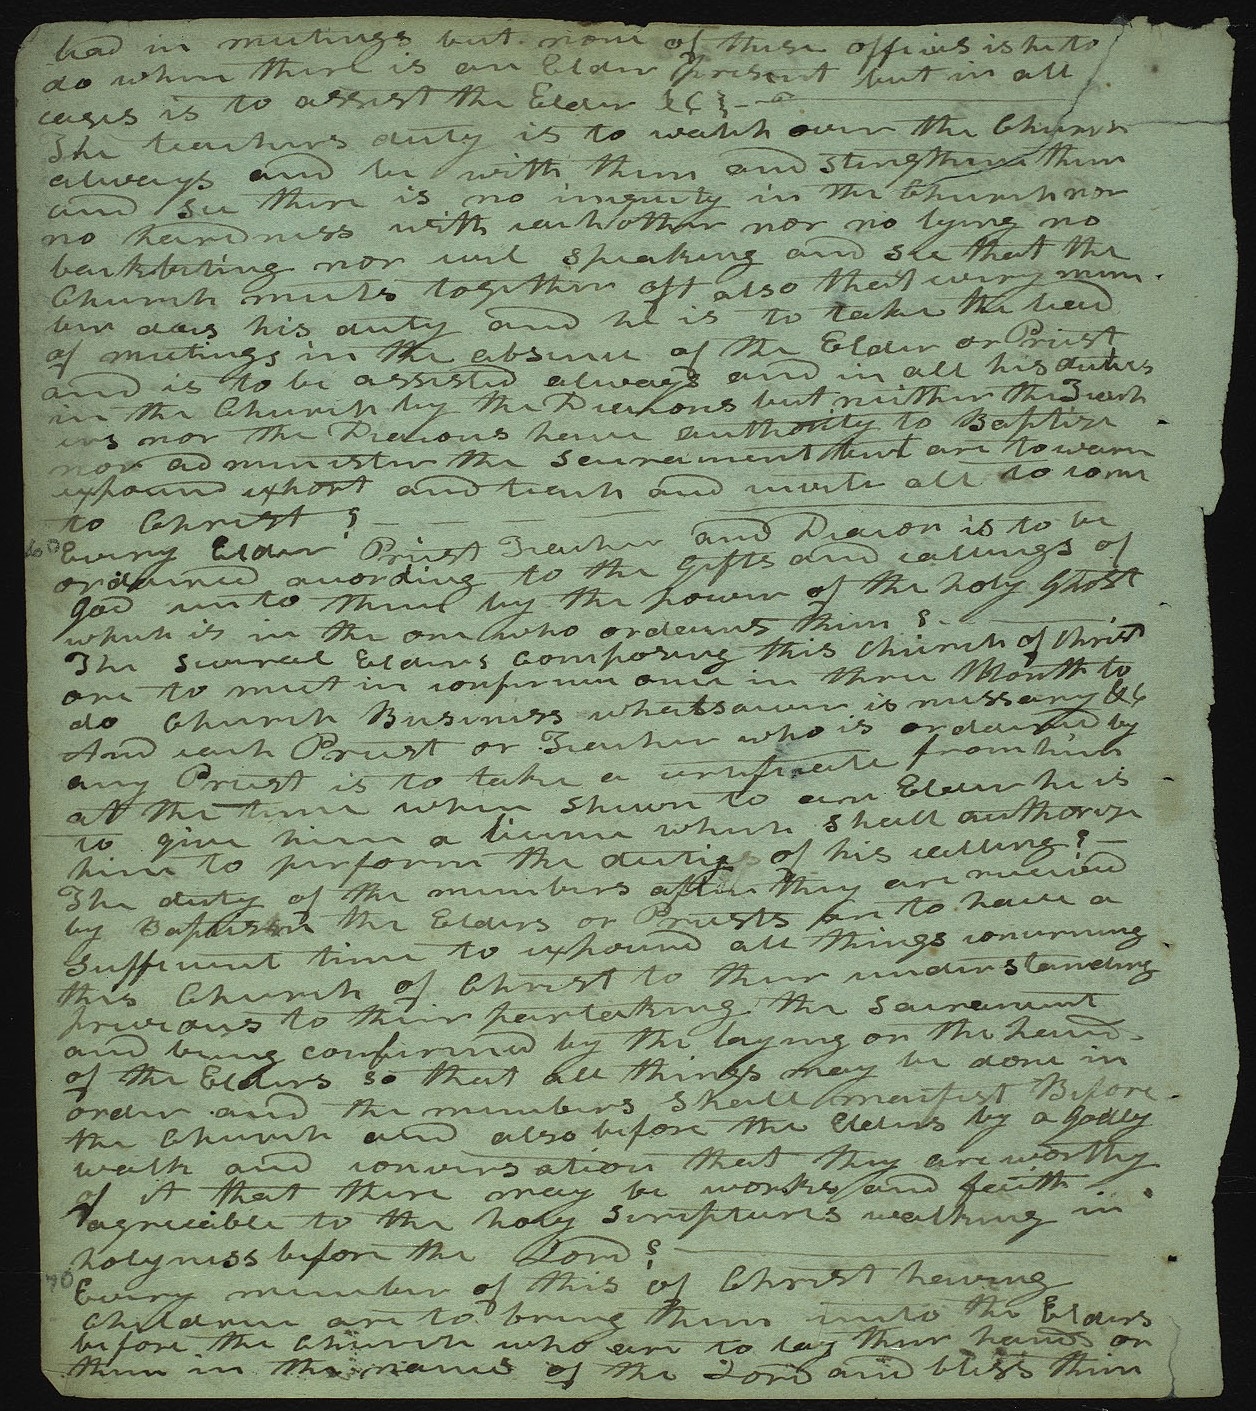 lead in meetings but none of these offices is he to
do when there is an Elder Present but in all
cases is to assist the Elder &C
The teachers duty is to watch over the Church
always and be with them and stengthen them
and see there is no iniquity in the Church nor
no hardness with each other nor no lying no
backbiting nor evil speaking and see that the
Church meets together oft also that every mem
ber does his duty and he is to take the lead
of meetings in the absence of the Elder or Priest
and is to be assisted always and in all his duties
in the Church by the Deacons but neither the Teach
ers nor the Deacons have authority to Baptize
nor administer the Sacrament but are to warn
expound exhort and teach and invite all to come
to Christ
60 Every Elder Priest Teacher and Deacon is to be
ordained acording to the gifts and callings of
god unto them by the power of the holy Ghost
which is in the one who ordeans them
The several Elders Composing this Church of Christ
are to meet in conference once in three Month to
do Church Business whatsoever is nessary &C
And each Priest or Teacher who is ordained by
any Priest is to take a certificate from him
at the time when shewn to an Elder he is
to give him a licence which shall authorize
him to perform the duties of his calling
The duty of the members after they are received
by Baptism the Elders or Priests are to have a
sufficient time to expound all things concerning
this Church of Christ to their understanding
previous to their partaking the Sacrament
and being confirmed by the laying on the hands
of the Elders so that all things may be done in
order and the members Shall manifest Before
the Church and also before the Elders by a godly
walk and conversation that they are worthy
of it that there may be works and faith
agreeable to the holy scriptures walking in
holyness before the Lord
70 Every member of this of Christ having
children are to bring them unto the Elders
before the Church who are to lay their hands on
them in the name of the Lord and bless them